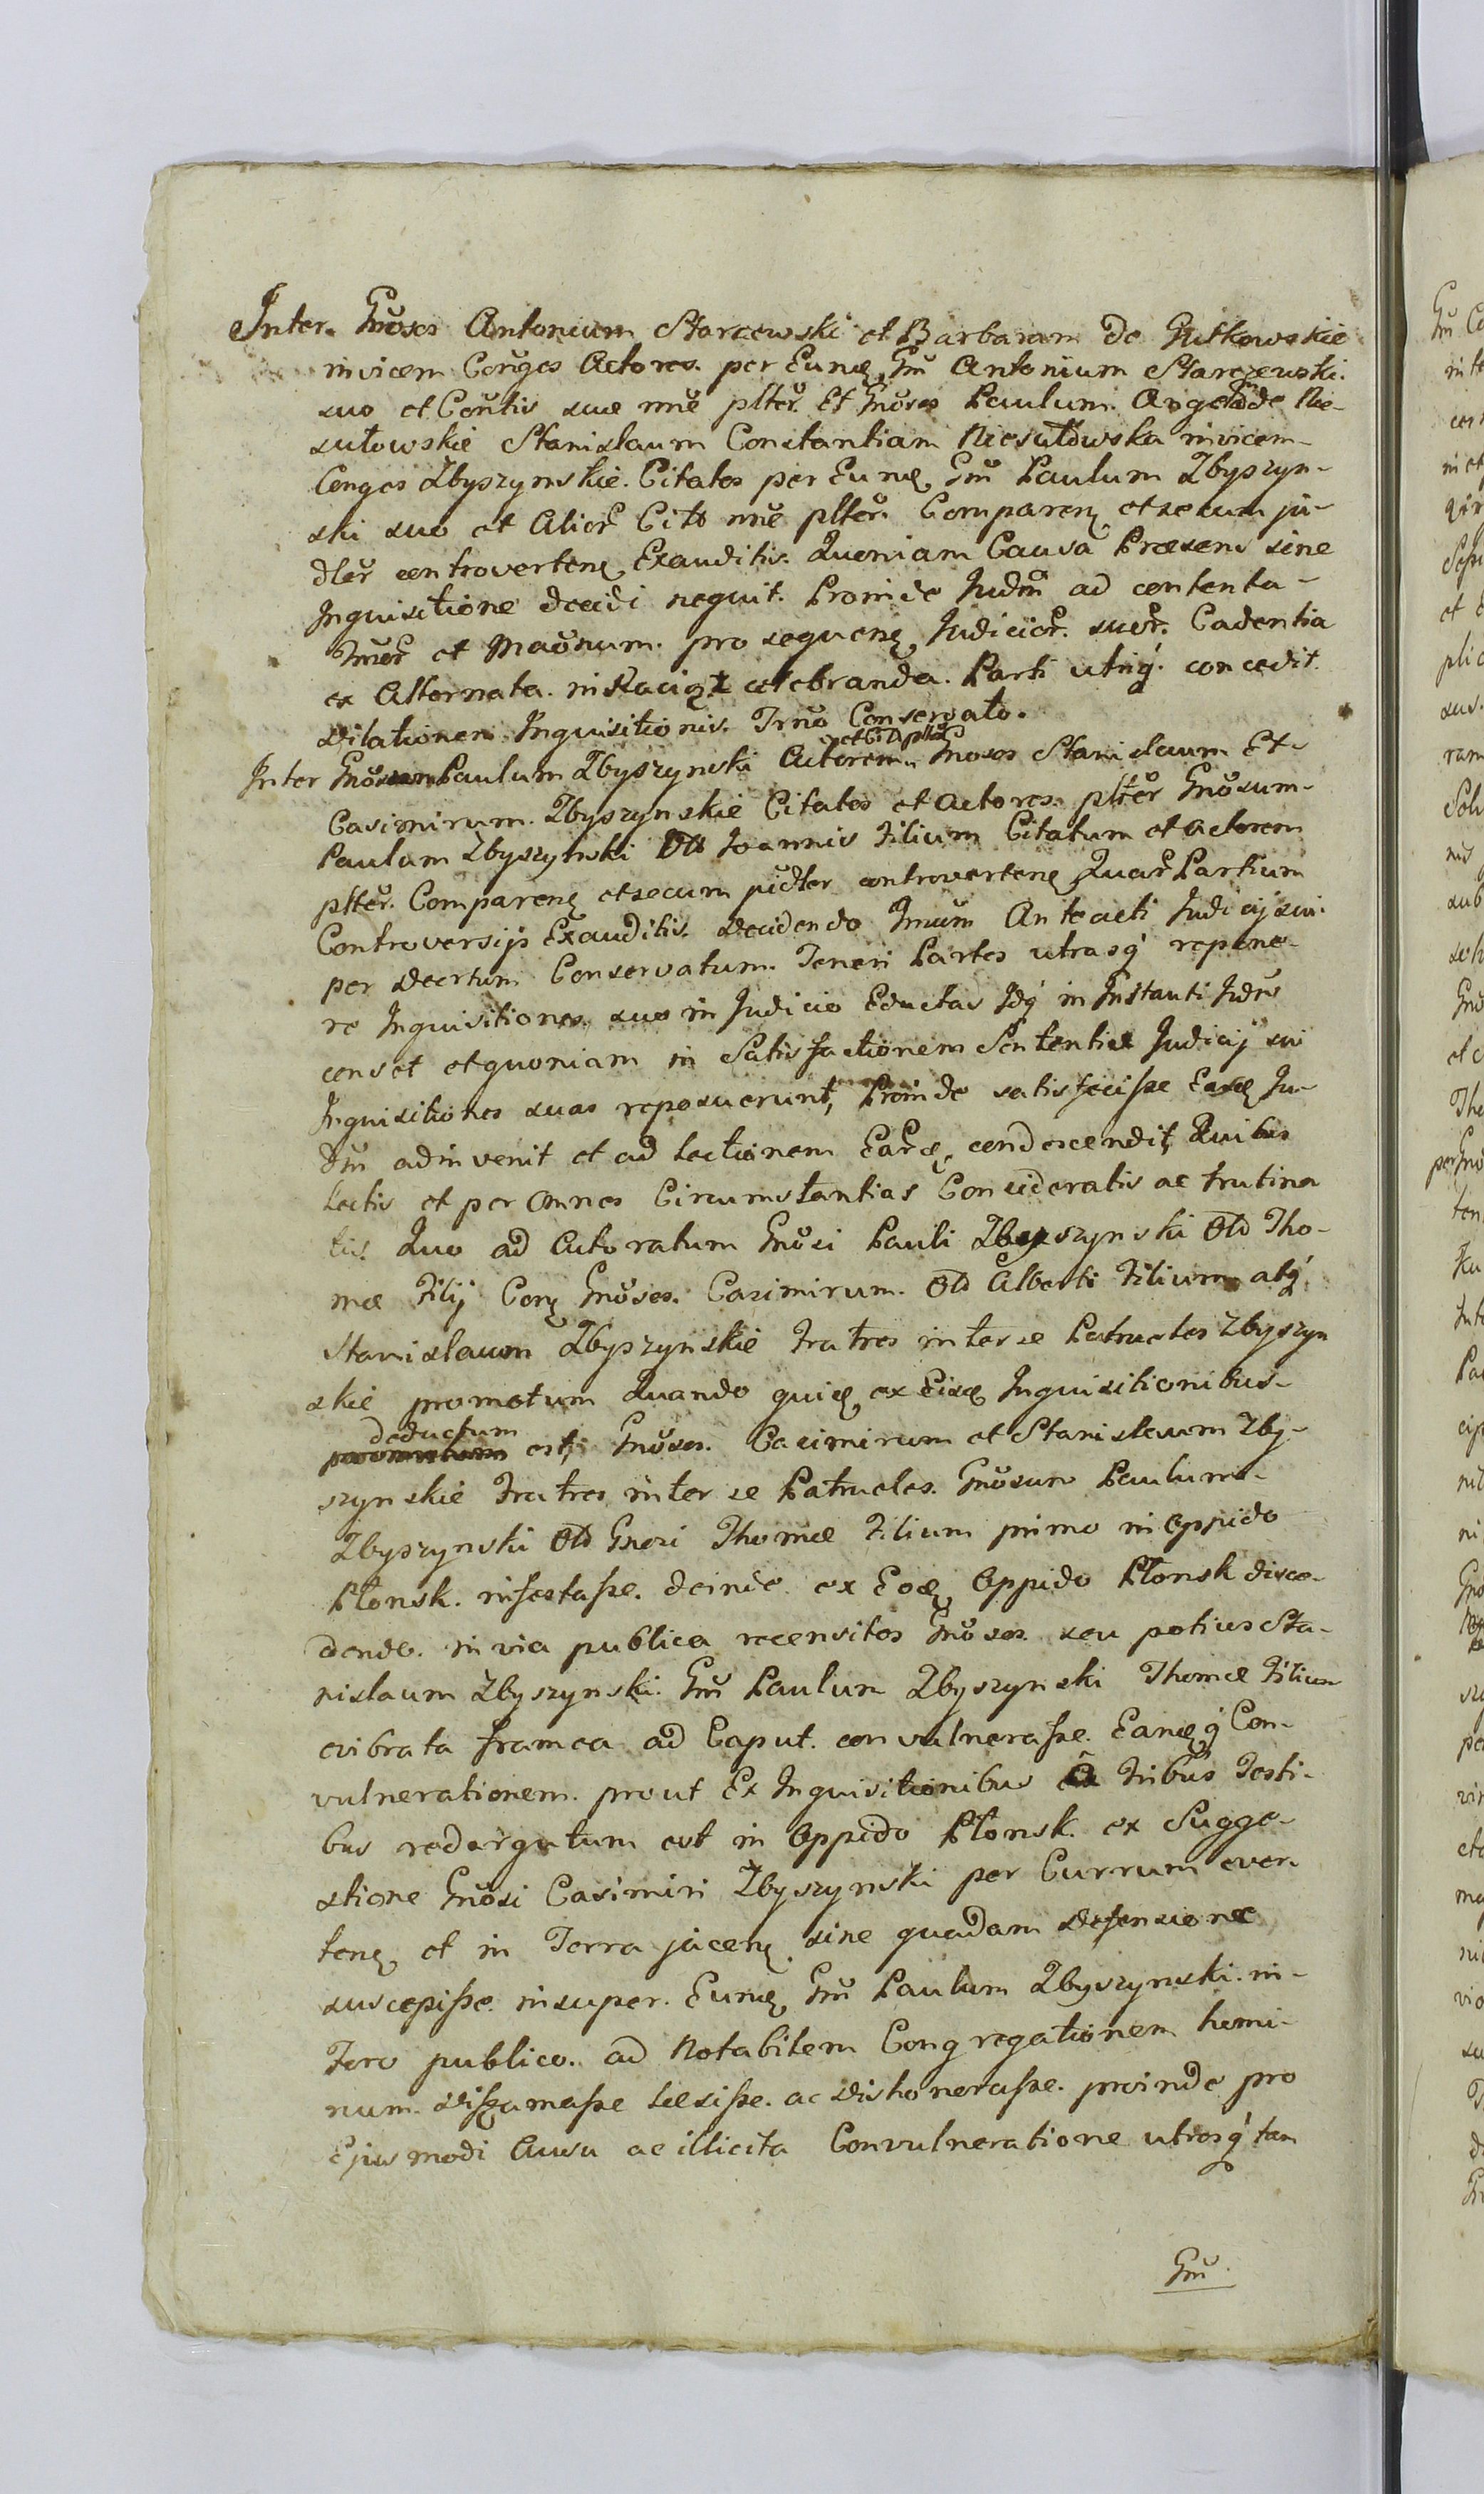 Inter Gnosos Antonium Starczewski et Barbaram de Gutkowskie
invicem Conges Actores. per Eund. Gnm Antonium Starczewski.
suo et Contis suæ nne plter. Et Gnosos Paulum. Angelam de Nie-
sułowskie Stanislaum Constantiam Niesułowska invicem
Conges Zbyszynskie. Citatos per Eund. Gnm Paulum Zbyszyn-
ski suo et Alior Cito nne plter. Comparen et secum ju-
dler controverten Exauditis. Quoniam Causa Præsens sine
Inquisitione decidi nequit. Proinde Judm ad contenta-
et Maonum. pro sequen Judicior. suor. Cadentia
ex Alternata. in Raciąż celebranda. Parti utriq. concedit.
Dilationem Inquisitionis. Trno Conservato.
Inter Gnosum Paulum Zbyszynski Actorem et Citt plter Gnosos Stanislaum Et
Casimirum. Zbyszynskie Citatos et Actores. plter Gnosum-
Paulum Zbyszynski Old Joannis Filium Citatum et Actorem
plter. Comparen et secum judler controverten Quar Partium
Controversijs Exauditis. Decidendo Trnum Anteacti Judicij sui.
per Decrtum Conservatum. Teneri Partes utrasq repone-
re Inquisitiones. suo in Judicio Eductas Idq in Instanti Judm
censet et quoniam in Satisfactionem Sententiæ Judicij sui
Inquisitiones suas reposuerunt, Proinde satisfecisse Easd Ju-
dm adinvenit et ad lectionem Eard. condescendit, Quibus
lectis et per omnes Circumstantias Consideratis ac trutina
tis. Quo ad Actoratum Gnosi Pauli Zbyszynski Old Tho-
mæ Filij Con Gnosos. Casimirum. Old Alberti Filium atq
Stanislaum Zbyszynskie Fratres inter se Patrueles Zbyszyn
skie promotum Quando quid. ex Eisd Inquisitionibus-
deductum
est, Gnosos. Casimirum et Stanislaum Zby-
szynskie Fratres inter se Patrueles. Gnosum Paulum-
Zbyszynski Old Gnosi Thomæ Filium primo in Oppido
Płonsk. infestasse. deinde ex Eod Oppido Płonsk disce-
dendo. in via publica recensitos Gnosos. seu potius Sta-
nislaum Zbyszynski. Gnm Paulum Zbyszynski Thomæ Filium
evibrata framea ad Caput. convulnerasse. Eandq Con-
vulnerationem. prout Ex Inquisitionibus a Tribus Testi-
bus redargutum est in Oppido Płonsk. ex Sugge-
stione Gnosi Casimiri Zbyszynski per Currum ever-
ten, et in Terra jacen sine quadam Defensione
suscepisse. insuper. Eund Gnm Paulum Zbyszynski. in-
Foro publico. ad Notabilem Congregationem homi-
num. diffamasse læsisse. ac dishonerasse. proinde pro
Ejusmodi Ausu ac illicita Convulneratione utrosq tam
Gnm